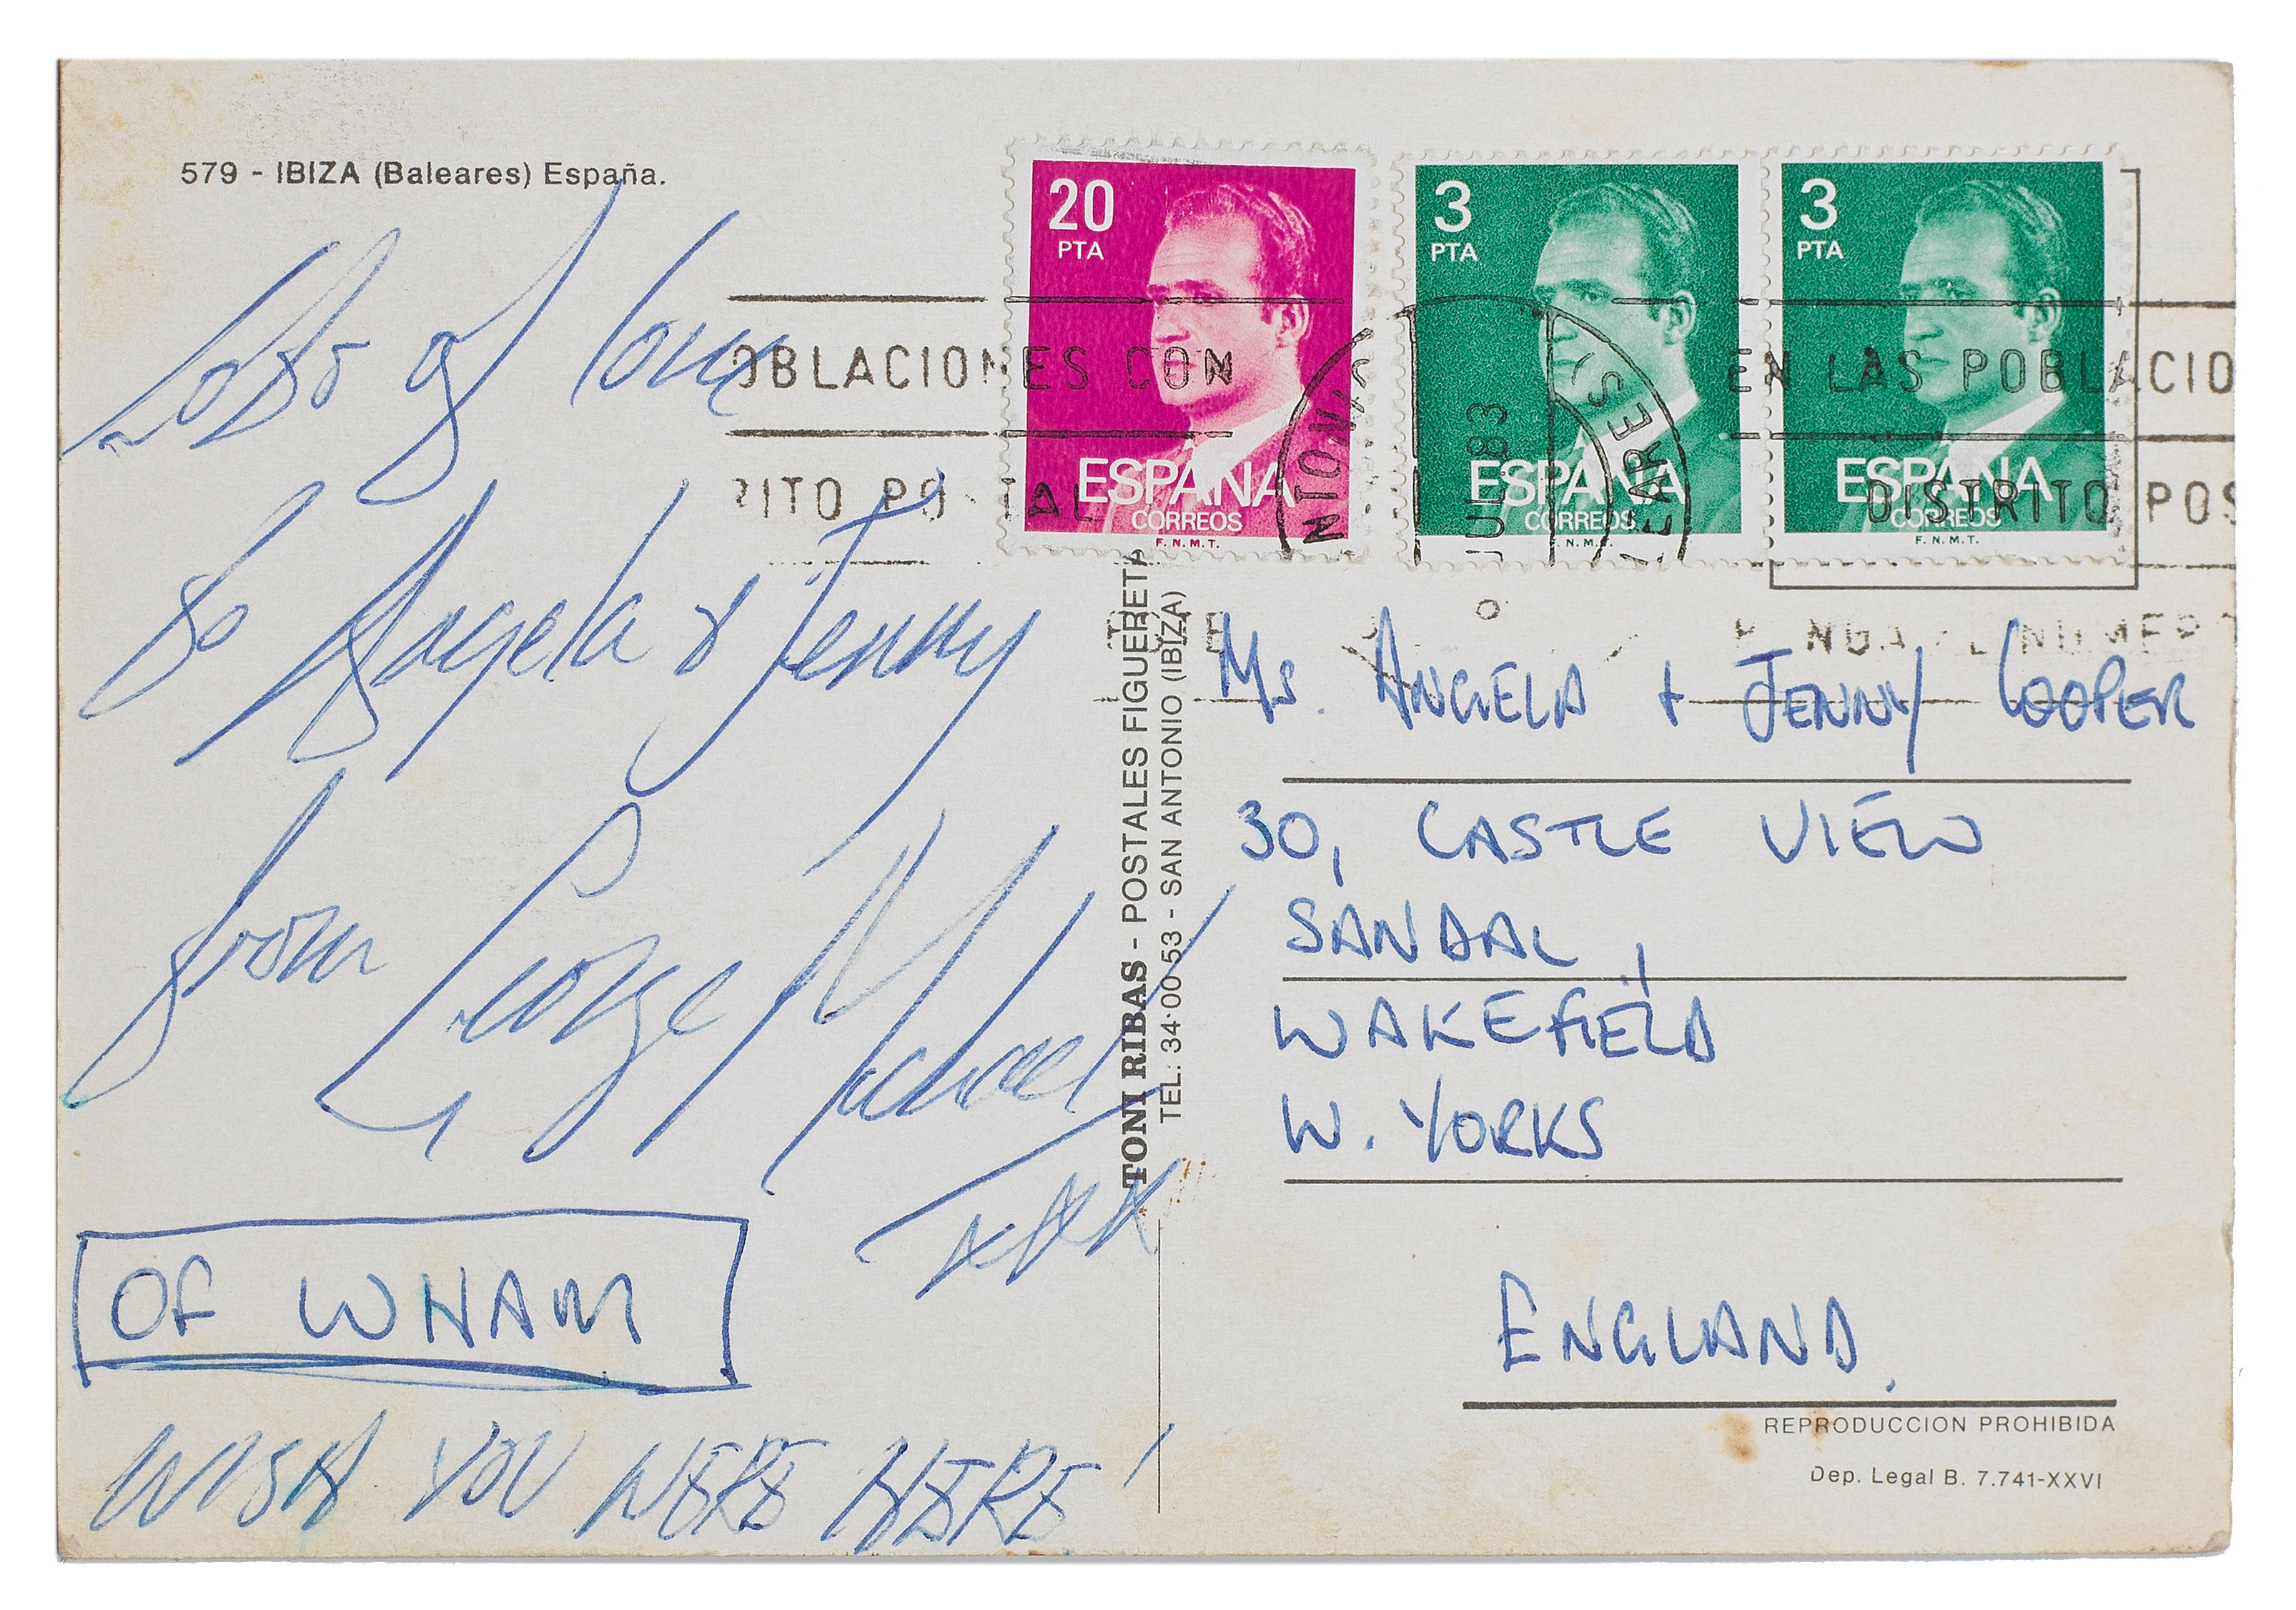 579 - IBIZA (Baleares) España.
Lots of love
to Angela & Jenny
from George Michael
xxxx
OF WHAM
WISH YOU WERE HERE!
20
PTA
ESPAÑA
CORREOS
F.N.M.T.
3
PTA
ESPAÑA
CORREOS
F.N.M.T.
3
PTA
ESPAÑA
CORREOS
F.N.M.T.
OBLACIONES CON
RITO POSTAL
JUL. 83
EN LAS POBLACIO
DISTRITO POS
PONGA EL NUMERO
TONI RIBAS - POSTALES FIGUERETA
TEL: 34·00·53 - SAN ANTONIO (IBIZA)
Ms. ANGELA + JENNY COOPER
30, CASTLE VIEW
SANDAL,
WAKEFIELD
W. YORKS
ENGLAND.
REPRODUCCION PROHIBIDA
Dep. Legal B. 7.741-XXVI